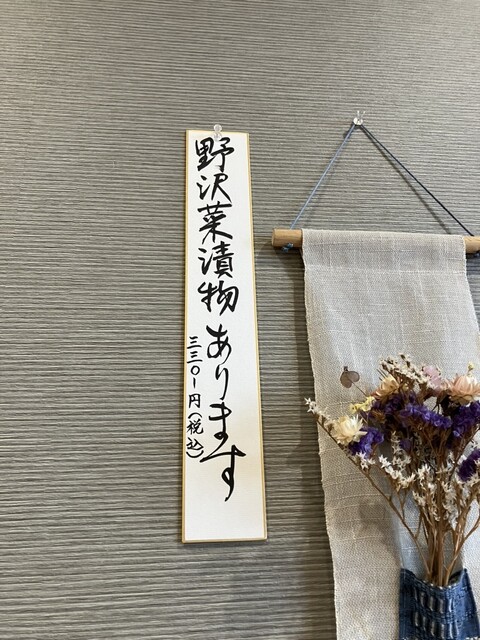 野沢菜漬物あります
三三〇円(税込)